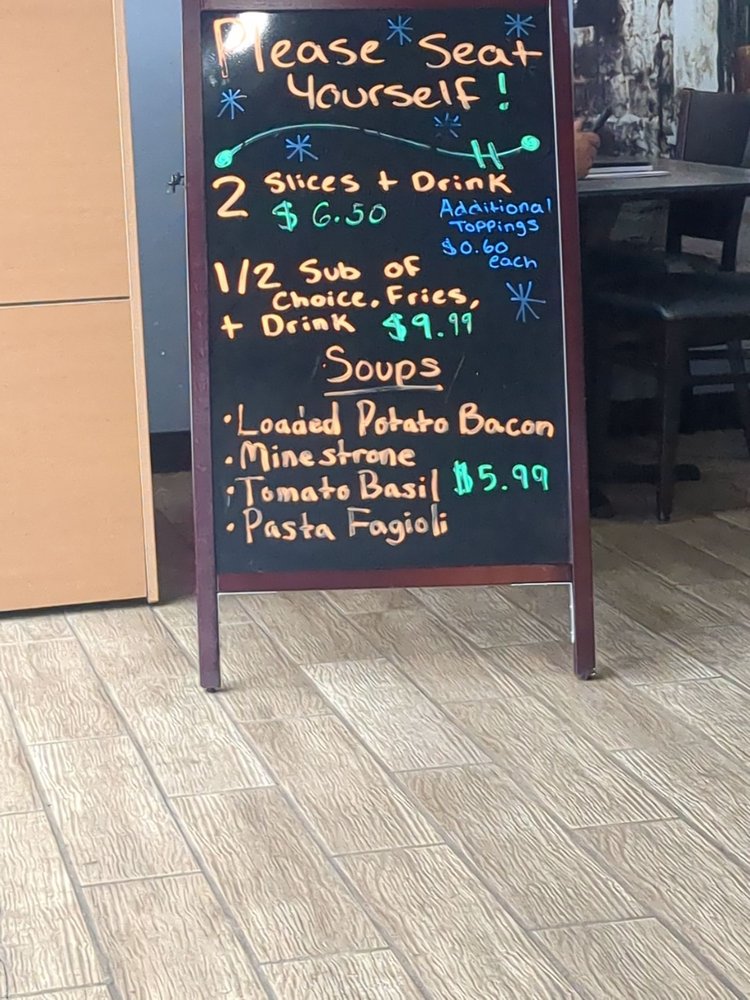 Please Seat
Yourself!
2 Slices + Drink
$6.50
Additional
Toppings
$0.60
each
1/2 Sub of
Choice, Fries,
+ Drink $9.99
Soups
• Loaded Potato Bacon
• Minestrone
• Tomato Basil $5.99
• Pasta Fagioli